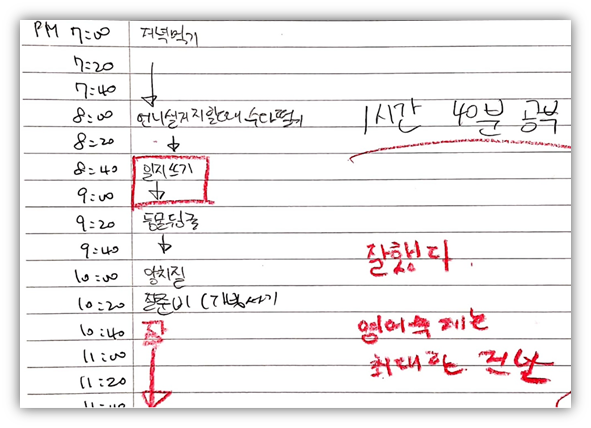 PM 7:00 저녁먹기
7:20
7:40
8:00 언니설거지할때 수다떨기
1시간 40분 공부
8:20
8:40 일지쓰기
9:00
9:20 뒹굴뒹굴
9:40
잘했다.
10:00 양치질
10:20 잘준비
10:40 잠
영어숙제는
11:00
최대한
11:20